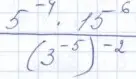 5^{-4} · 15^{6}
(3^{-5})^{-2}